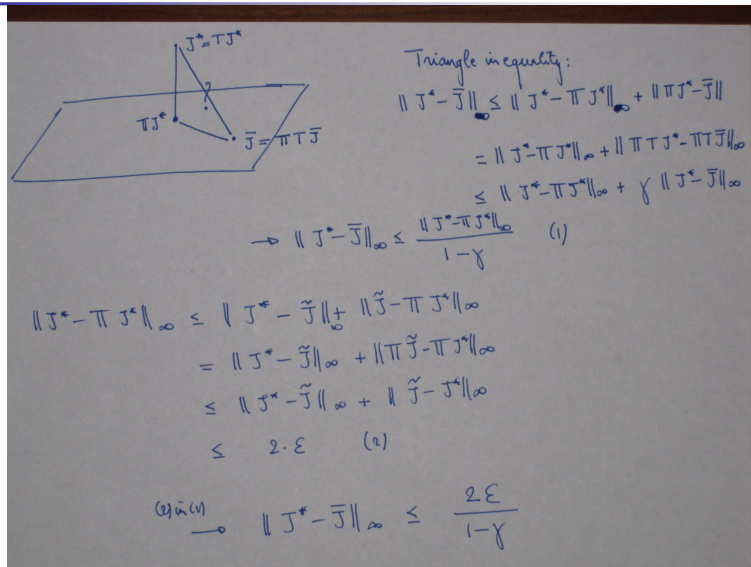 J* = TJ*
?
ΠJ*
J̄ = ΠTJ̄
Triangle inequality:
‖J* - J̄‖∞ ≤ ‖J* - ΠJ*‖∞ + ‖ΠJ* - J̄‖
= ‖J* - ΠJ*‖∞ + ‖ΠTJ* - ΠTJ̄‖∞
≤ ‖J* - ΠJ*‖∞ + γ ‖J* - J̄‖∞
→ ‖J* - J̄‖∞ ≤ ‖J* - ΠJ*‖∞ / (1 - γ) (1)
‖J* - ΠJ*‖∞ ≤ ‖J* - J̃‖∞ + ‖J̃ - ΠJ*‖∞
= ‖J* - J̃‖∞ + ‖ΠJ̃ - ΠJ*‖∞
≤ ‖J* - J̃‖∞ + ‖J̃ - J*‖∞
≤ 2·ε (2)
(2) in (1) → ‖J* - J̄‖∞ ≤ 2ε / (1 - γ)